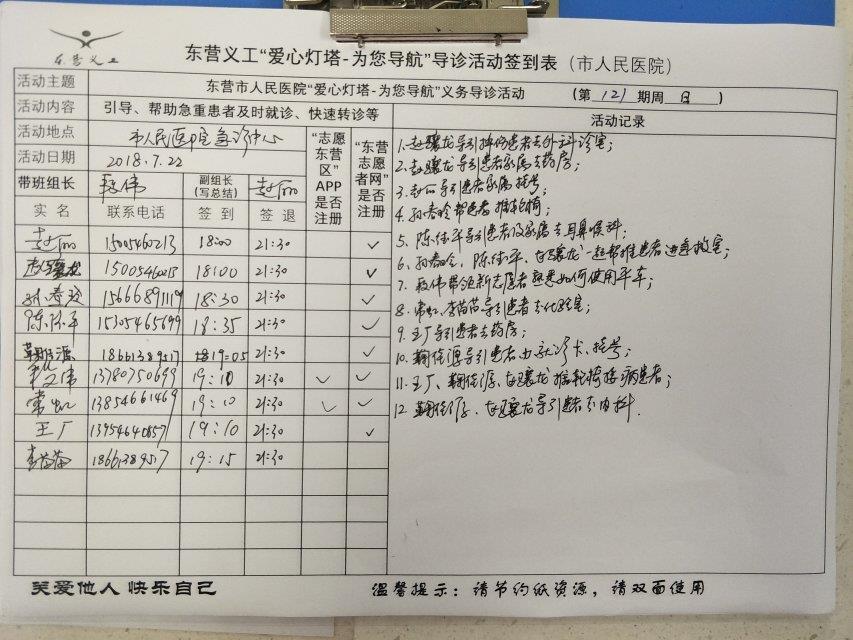 东营义工
东营义工“爱心灯塔-为您导航”导诊活动签到表（市人民医院）
活动主题 东营市人民医院“爱心灯塔-为您导航”义务导诊活动 （第 121 期周 日 ）
活动内容 引导、帮助急重患者及时就诊、快速转诊等
活动地点 市人民医院急诊中心
活动日期 2018.7.22
带班组长 伟 副组长（写总结） 赵丽
“志愿东营区”APP是否注册
“东营志愿者网”是否注册
实名 联系电话 签到 签退
赵丽 15005460213 18:00 21:30 ✓
赵骧龙 15005460213 18:00 21:30 ✓
孙春玲 15666891119 18:30 21:30 ✓
陈 平 15305465699 18:35 21:30 ✓
源 18661389517 19:05 21:30 ✓
伟 13780750699 19:10 21:30 ✓ ✓
常虹 13854661469 19:10 21:30 ✓ ✓
王厂 13954640857 19:10 21:30 ✓
李苗苗 18661389517 19:15 21:30
活动记录
1.赵骧龙导引摔伤患者去外科诊室；
2.赵骧龙导引患者家属去药房；
3.赵丽导引患者家属挂号；
4.孙春玲帮患者推轮椅；
5.陈 平导引患者及家属去耳鼻喉科；
6.孙春玲、陈 平、赵骧龙一起帮推患者进急救室；
7. 伟带领新志愿者熟悉如何使用平车；
8.常虹、李苗苗导引患者去化验室；
9.王厂导引患者去药房；
10. 源导引患者办就诊卡、挂号；
11.王厂、 源、赵骧龙推轮椅接病患者；
12. 源、赵骧龙导引患者去内科.
关爱他人 快乐自己
温馨提示：请节约纸资源，请双面使用